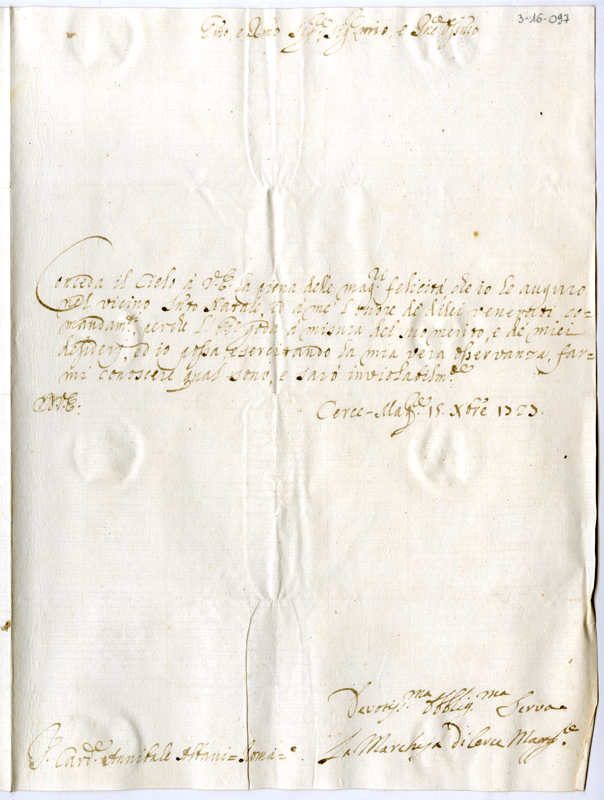 3-16-097
Emo, e Rmo Sigre Sigr mio, e Pne Colmo
Conceda il Cielo à V.E. la piena delle magri felicità che io le auguro
nel vicino Snto Natale, ed à me l'onore de di lei venerati co-
mandamti, perche l'E.V. goda à misura del suo merito, e de miei
desiderj, ed io possa esercitando la mia vera osservanza, far-
mi conoscere qual sono, e sarò inviolabilmte
D.V.E:
Cerce-Magre 15. Xbre 1723.
Devotisma Obbligma Serva
La Marchesa di Cerce Magre
Sr. Carde Annibale Albani = Roma =